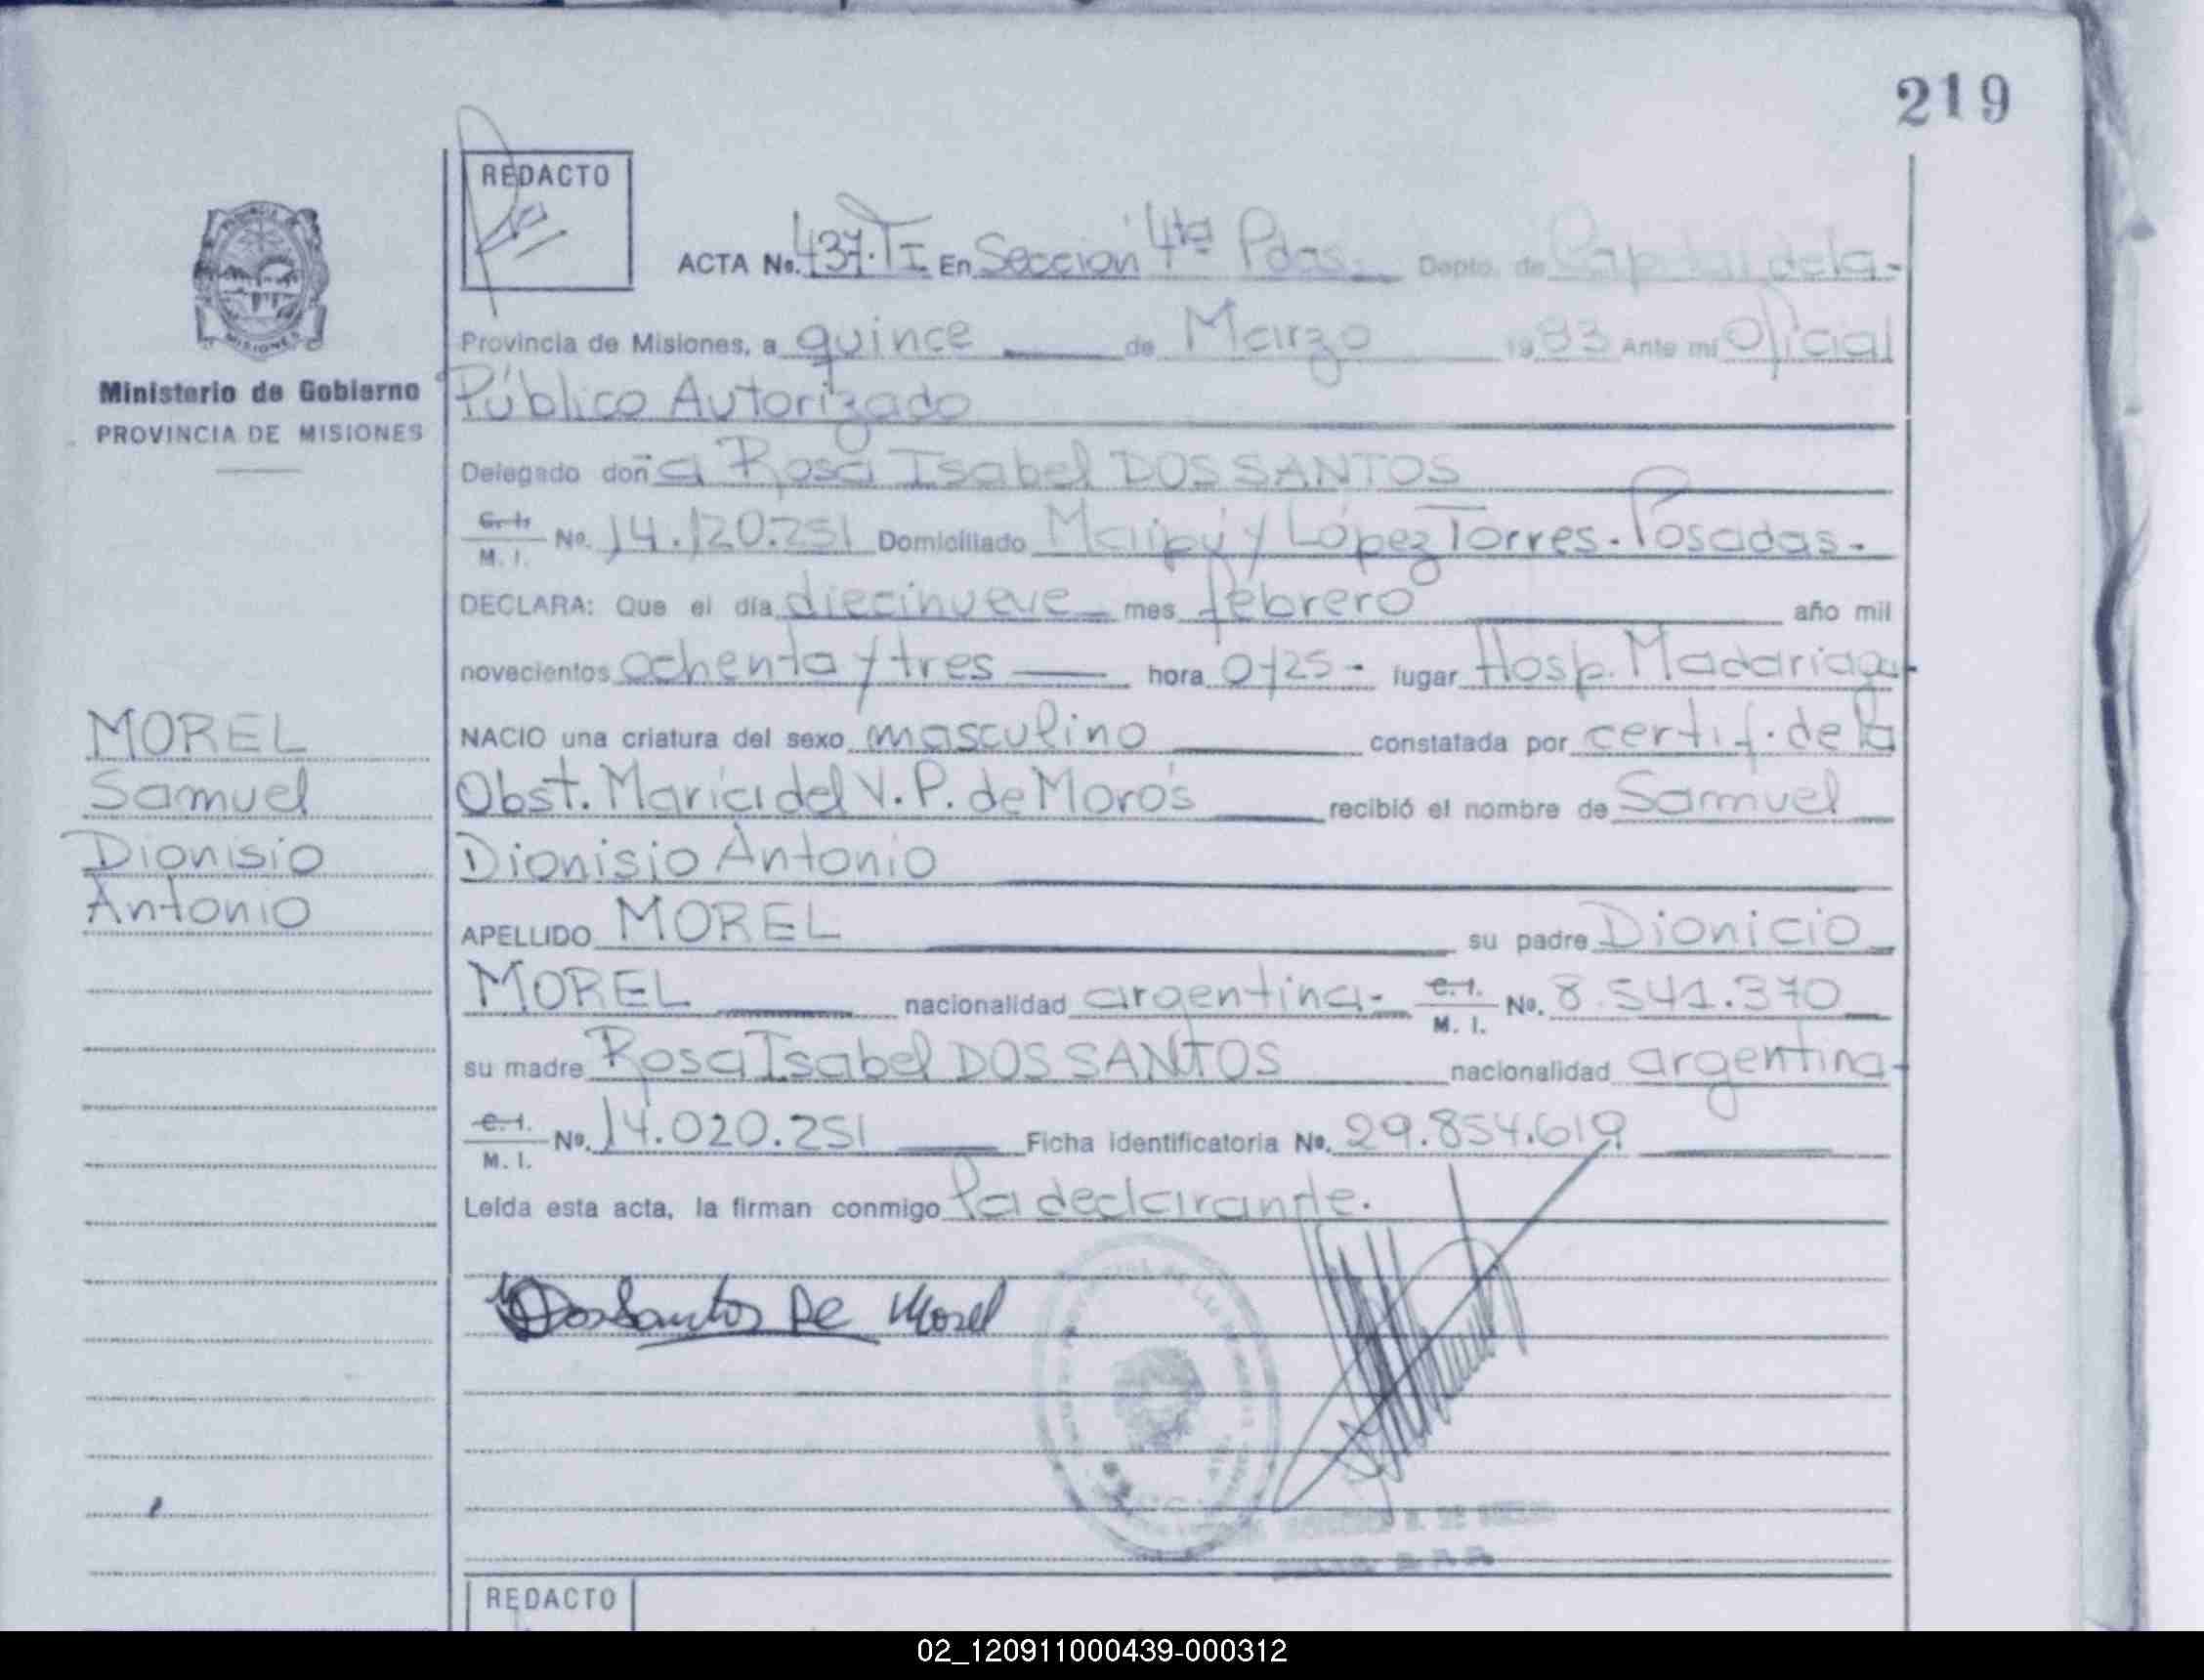 219
REDACTO
ACTA No. 437. TI En Sección 4ta Pdas. Depto. de Capital de la-
Provincia de Misiones, a quince de Marzo 1983 Ante mí Oficial
Público Autorizado
Delegado doña Rosa Isabel DOS SANTOS
C. I.
M. I. No. 14.120.251 Domiciliado Maipú y López Torres. Posadas.
DECLARA: Que el día diecinueve mes febrero año mil
novecientos ochenta y tres hora 0,25- lugar Hosp. Madariaga
NACIO una criatura del sexo masculino constatada por certif. de la
Obst. María del V. P. de Morós recibió el nombre de Samuel
Dionisio Antonio
APELLIDO MOREL su padre Dionicio
MOREL nacionalidad argentina- C. I.
M. I. No. 8.541.370
su madre Rosa Isabel DOS SANTOS nacionalidad argentina-
C. I.
M. I. No. 14.020.251 Ficha identificatoria No. 29.854.619
Leída esta acta, la firman conmigo la declarante.
Dos Santos De Morel
REDACTO
MISIONES
Ministerio de Gobierno
PROVINCIA DE MISIONES
MOREL
Samuel
Dionisio
Antonio
02_120911000439-000312